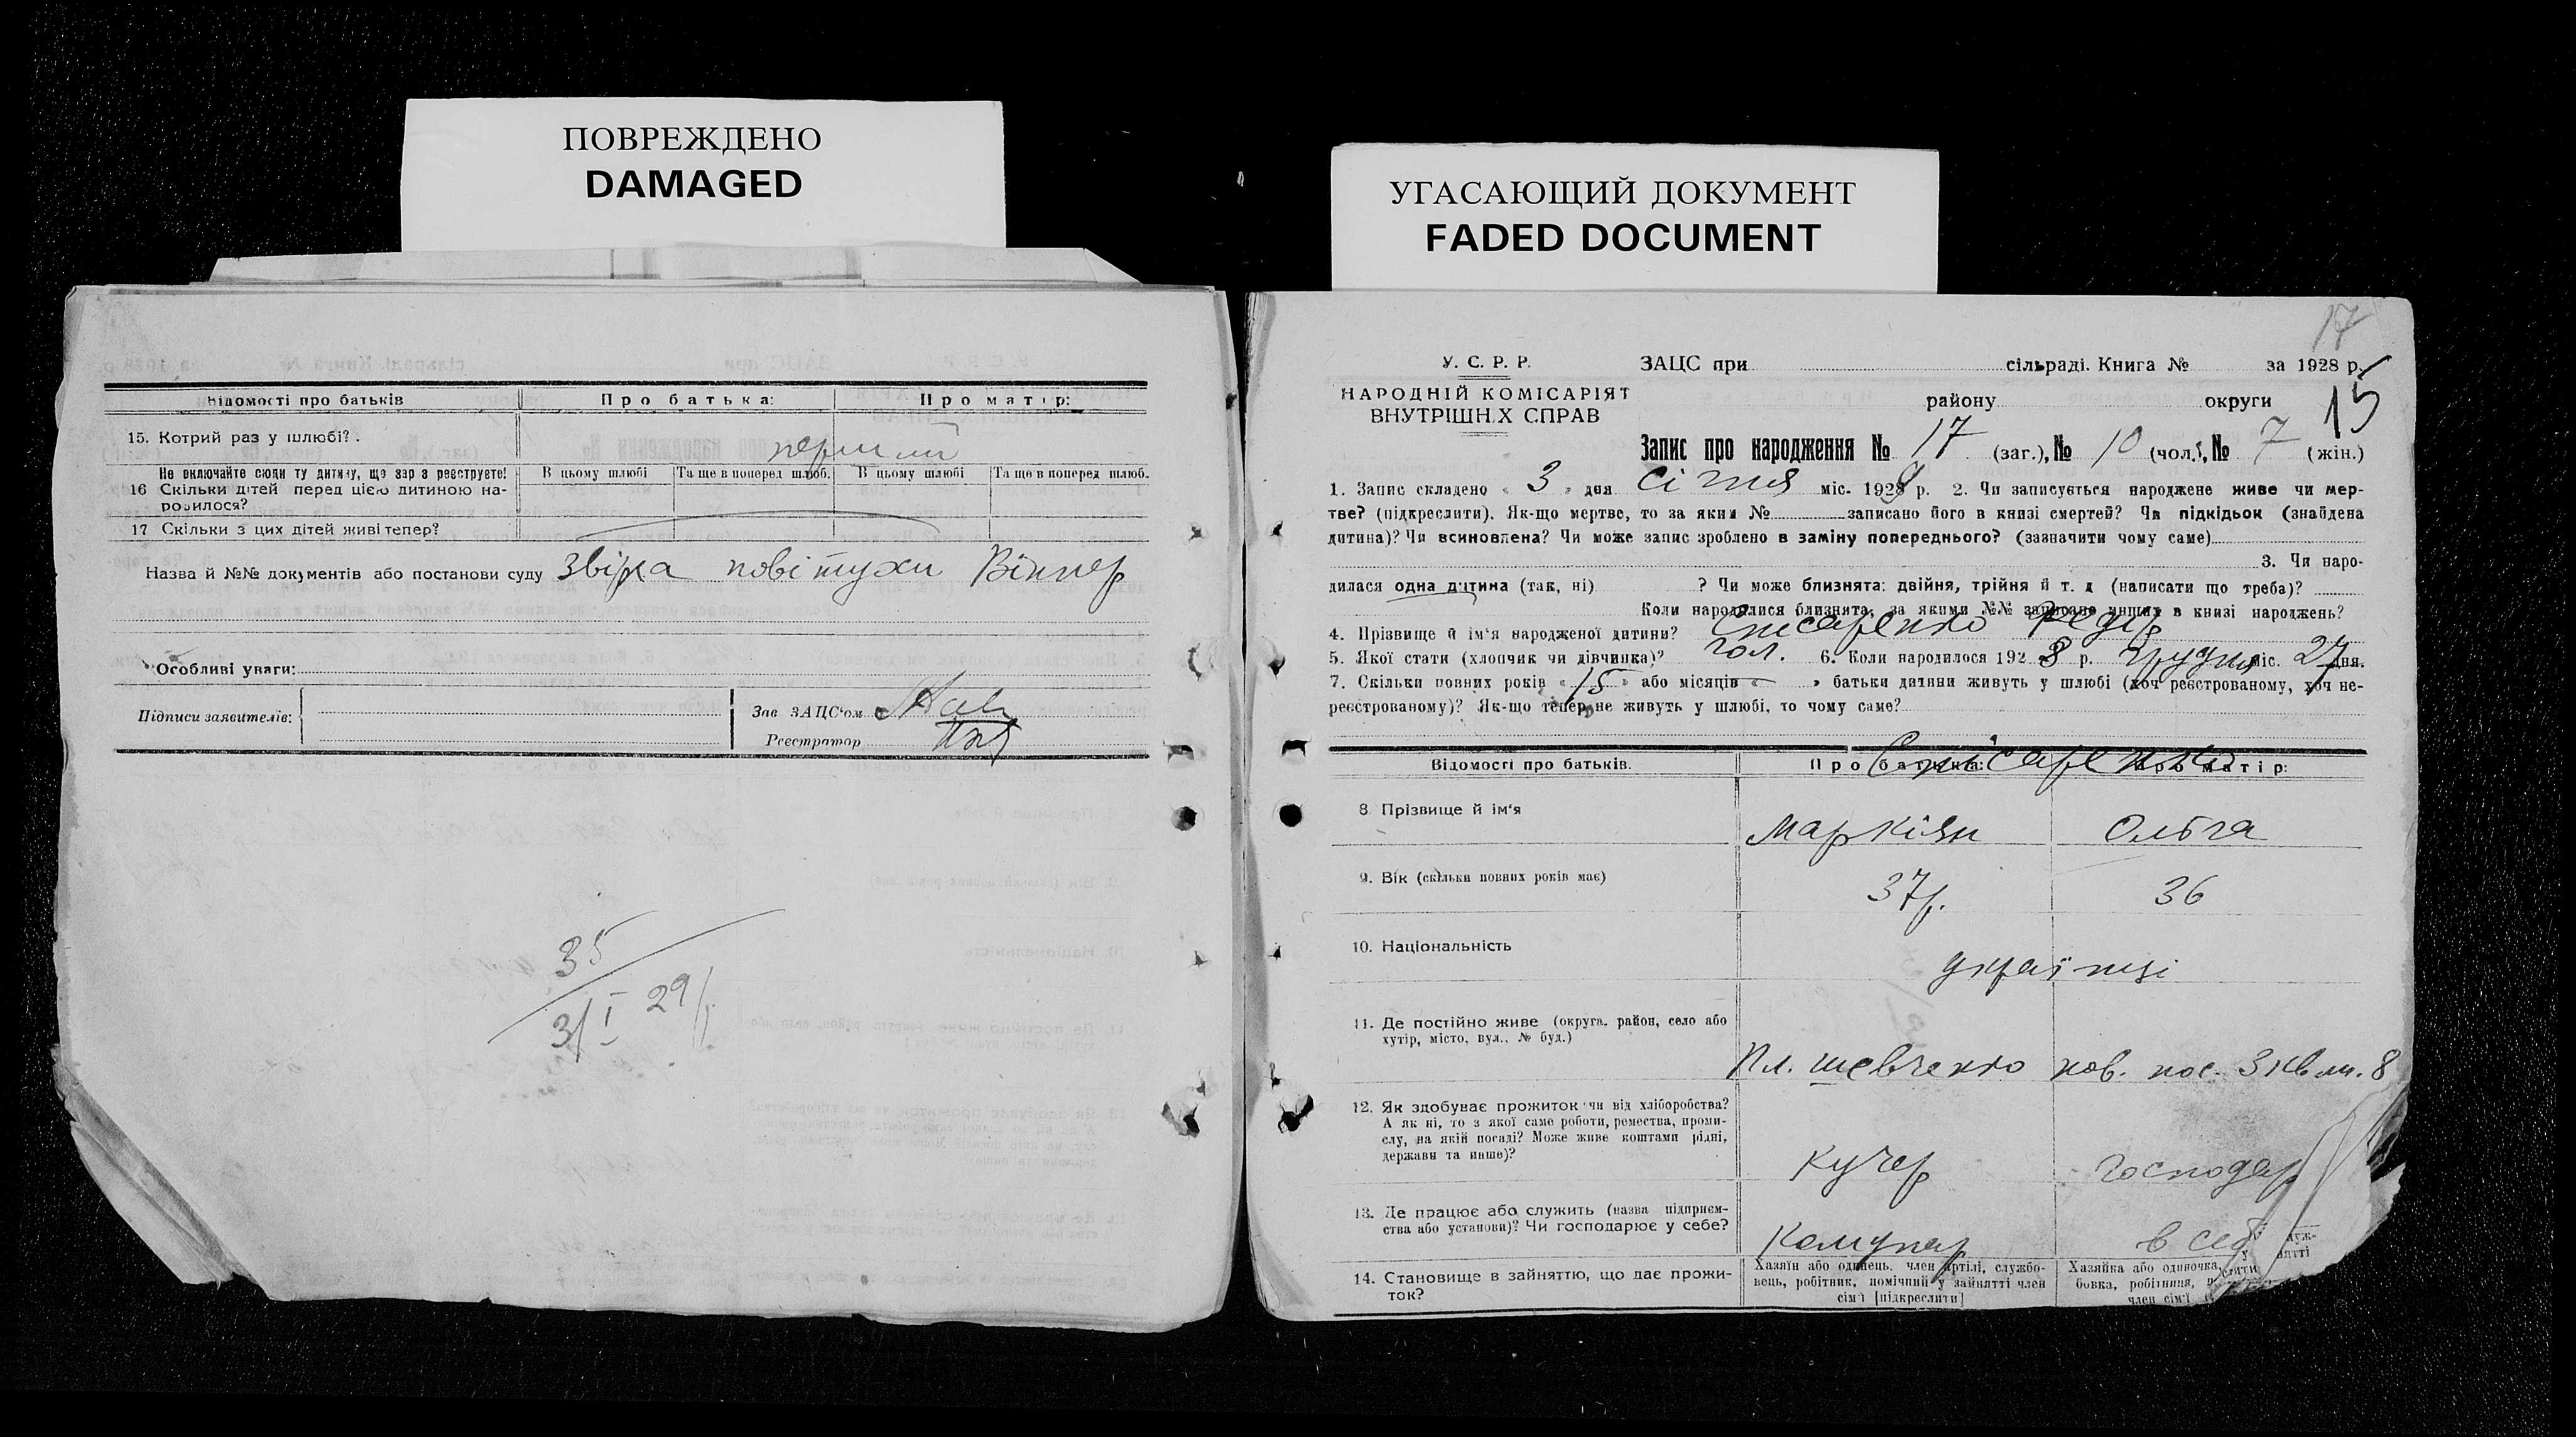 ПОВРЕЖДЕНО
DAMAGED
Відомості про батьків
Про батька:
Про матір:
15. Котрий раз у шлюбі?.
перший
Не включайте сюди ту дитину, що зараз реєструєте!
В цьому шлюбі
Та ще в поперед шлюб.
В цьому шлюбі
Та ще в поперед шлюб.
16 Скільки дітей перед цією дитиною на-
родилося?
17 Скільки з цих дітей живі тепер?
Назва й №№ документів або постанови суду звірка повітухи Вінпер
Особливі уваги:
Підписи заявителів:
Зав ЗАЦС'ом
Реєстратор
35
3/I 29 р.
УГАСАЮЩИЙ ДОКУМЕНТ
FADED DOCUMENT
17
У. С. Р. Р.
ЗАЦС при сільраді. Книга № за 1928 р.
НАРОДНІЙ КОМІСАРІЯТ
ВНУТРІШНІХ СПРАВ
району округи
15
Запис про народження № 17 (заг.), № 10 (чол.), № 7 (жін.)
1. Запис складено « 3 » дня січня міс. 1929 р. 2. Чи записується народжене живе чи мер-
тве? (підкреслити). Як-що мертве, то за яким № записано його в книзі смертей? Чи підкідьок (знайдена
дитина)? Чи всиновлена? Чи може запис зроблено в заміну попереднього? (зазначити чому саме)
3. Чи наро-
дилася одна дитина (так, ні) ? Чи може близнята: двійня, трійня й т. д (написати що треба)?
Коли народилися близнята, за якими №№ записано інших в книзі народжень?
4. Прізвище й ім'я народженої дитини? Снісаренко Федір
5. Якої стати (хлопчик чи дівчинка)? чол. 6. Коли народилося 192 8 р. грудня міс. 27 дня.
7. Скільки повних років « 15 » або місяців « — » батьки дитини живуть у шлюбі (хоч реєстрованому, хоч не-
реєстрованому)? Як-що тепер не живуть у шлюбі, то чому саме?
Відомості про батьків.
Про батька:
Про матір:
Снісаренко
8. Прізвище й ім'я
Маркіян
Ольга
9. Вік (скільки повних років має)
37р.
36
10. Національність
українці
11. Де постійно живе (округа, район, село або
хутір, місто, вул., № буд.)
Пл. Шевченко нов. пос. 3 кв. 8
12. Як здобуває прожиток чи від хліборобства?
А як ні, то з якої саме роботи, ремества, проми-
слу, на якій посаді? Може живе коштами рідні,
держави та инше)?
Кучер
господар
13. Де працює або служить (назва підприєм-
ства або установи)? Чи господарює у себе?
Комунар
в себ
14. Становище в зайняттю, що дає прожи-
ток?
Хазяїн або одинець, член артілі, службо-
вець, робітник, помічний у зайнятті член
сім'ї [підкреслити]
Хазяйка або одиночка,
бовка, робітниця,
член сім'ї